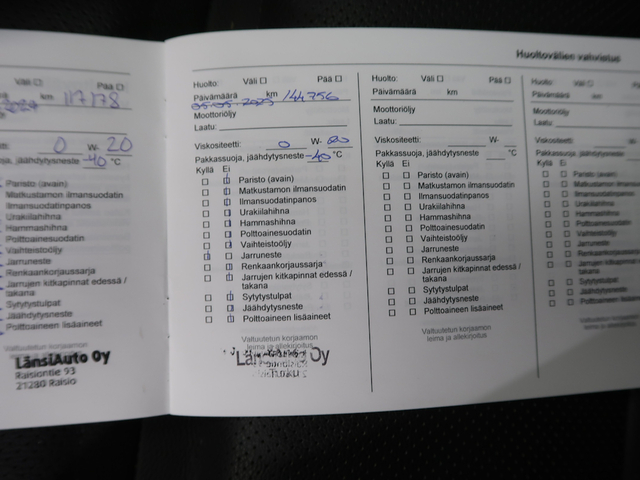 Huoltovälien vahvistus
Väli ☐ Pää ☐
km 117178
0 W- 20
jäähdytysneste -40 °C
Paristo (avain)
Matkustamon ilmansuodatin
Ilmansuodatinpanos
Urakiilahihna
Hammashihna
Polttoainesuodatin
Vaihteistoöljy
Jarruneste
Renkaankorjaussarja
Jarrujen kitkapinnat edessä /
takana
Sytytystulpat
Jäähdytysneste
Polttoaineen lisäaineet
Valtuutetun korjaamon
LänsiAuto Oy
Raisiontie 93
21280 Raisio
Huolto: Väli ☐ Pää ☐
Päivämäärä km 144756
05-05 2025
Moottoriöljy
Laatu:
Viskositeetti: 0 W- 20
Pakkassuoja, jäähdytysneste -40 °C
Kyllä Ei
Paristo (avain)
Matkustamon ilmansuodatin
Ilmansuodatinpanos
Urakiilahihna
Hammashihna
Polttoainesuodatin
Vaihteistoöljy
Jarruneste
Renkaankorjaussarja
Jarrujen kitkapinnat edessä /
takana
Sytytystulpat
Jäähdytysneste
Polttoaineen lisäaineet
Valtuutetun korjaamon
leima ja allekirjoitus
Oy
Turku
Huolto: Väli ☐ Pää ☐
Päivämäärä km
Moottoriöljy
Laatu:
Viskositeetti: W-
Pakkassuoja, jäähdytysneste °C
Kyllä Ei
Paristo (avain)
Matkustamon ilmansuodatin
Ilmansuodatinpanos
Urakiilahihna
Hammashihna
Polttoainesuodatin
Vaihteistoöljy
Jarruneste
Renkaankorjaussarja
Jarrujen kitkapinnat edessä /
takana
Sytytystulpat
Jäähdytysneste
Polttoaineen lisäaineet
Valtuutetun korjaamon
leima ja allekirjoitus
Huolto: Väli ☐
Päivämäärä km
Moottoriöljy
Laatu:
Viskositeetti:
Pakkassuoja, jäähdytysneste
Kyllä Ei
Paristo (avain)
Matkustamon ilmansuodatin
Ilmansuodatinpanos
Urakiilahihna
Hammashihna
Polttoainesuodatin
Vaihteistoöljy
Jarruneste
Renkaankorjaussarja
Jarrujen kitkapinnat edessä /
takana
Sytytystulpat
Jäähdytysneste
Polttoaineen lisäaineet
Valtuutetun korjaamon
leima ja allekirjoitus